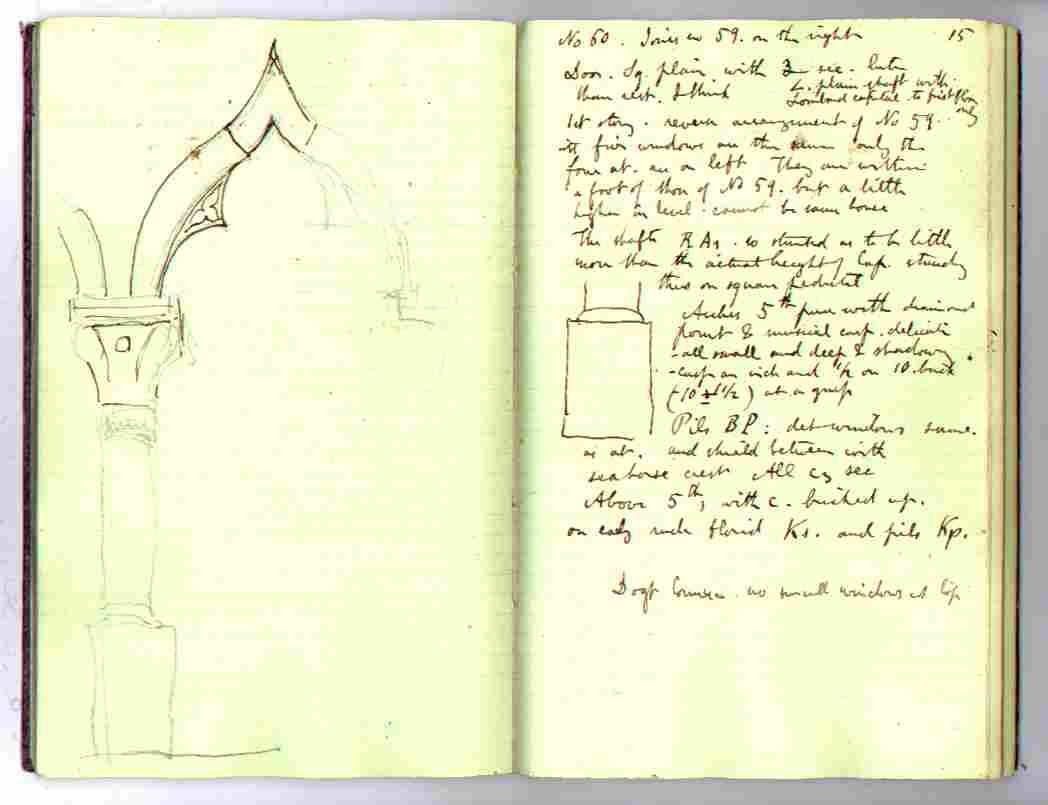 No 60. Joins on 59. on the right
15
Door. Sq. plain. with 3 sec. later
than rest. I think
L. plain shaft with
Lombard capital. to first floor
only
1st story. reverse arrangement of No 59.
its five windows are the same only the
four at. are on left They are within
a foot of those of No 59. but a little
higher in level. cannot be same house
The shafts R As. so stunted as to be little
more than the actual height of cap. standing
thus on square pedestal
Arches 5th pure with diamond
point & unusual cusp. delicate
- all small and deep & shadowy.
- cusp an inch and 1/2 on 10. brick
(-10 + 1 1/2) at a guess
Pils BP: det windows same.
as at. and shield between with
seahorse crest All c3 sec
Above 5th, with c. bricked up.
on early rude florid Ks. and pils Kp.
Dogt Cornice. no small windows at top